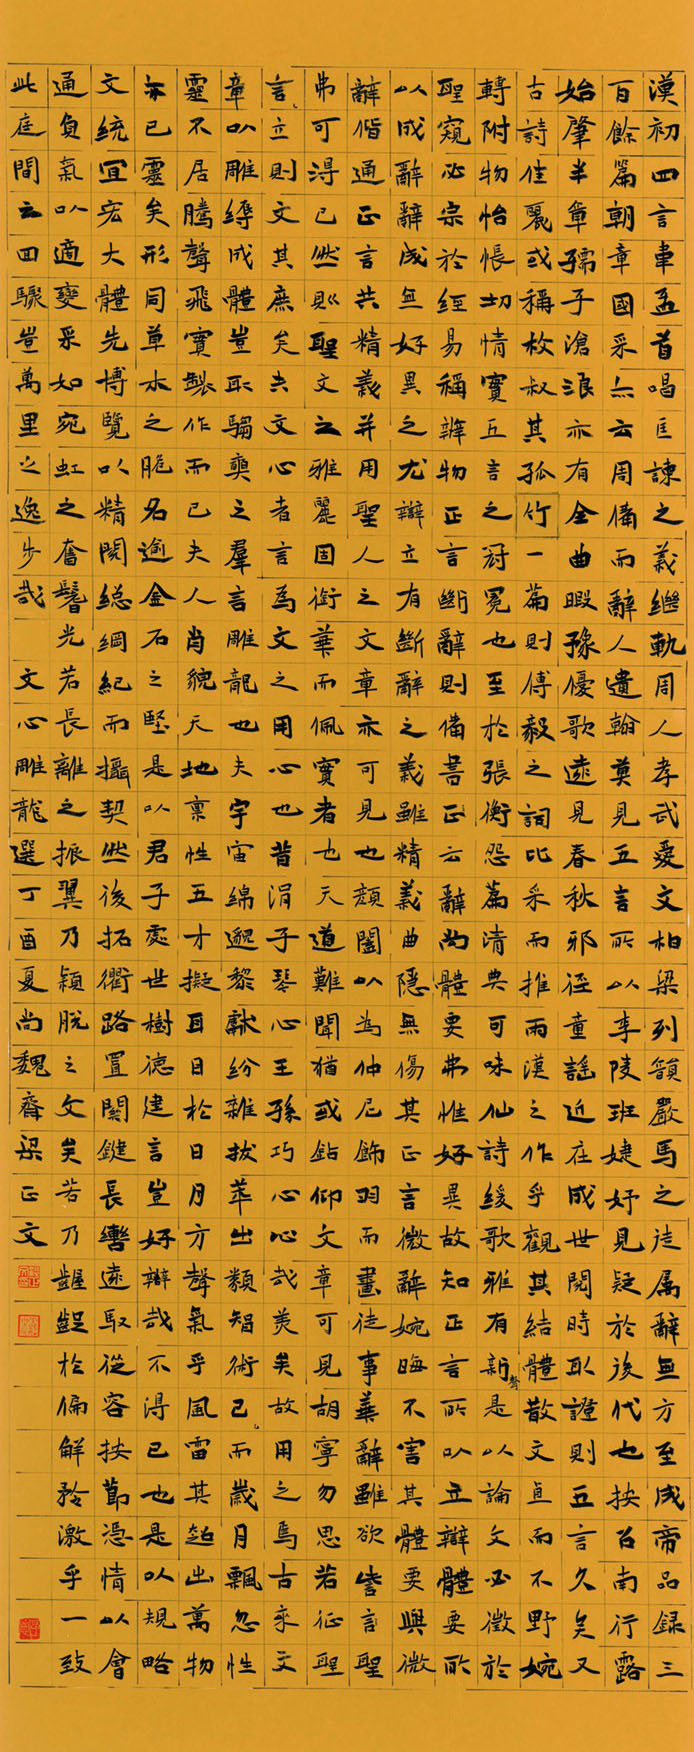 漢初四言韋孟首唱匡諫之義繼軌周人孝武愛文柏梁列韻嚴馬之徒属辭無方至成帝品録三
百餘篇朝章國采亦云周備而辭人遺翰莫見五言所以李陵班婕妤見疑於後代也按召南行露
始肇半章孺子滄浪亦有全曲暇豫優歌遠見春秋邪徑童謡近在成世閱時取證則五言久矣又
古詩佳麗或稱枚叔其孤竹一篇則傅毅之詞比采而推兩漢之作乎觀其結體散文直而不野婉
轉附物怡悵切情實五言之冠冕也至於張衡怨篇清典可味仙詩緩歌雅有新聲是以論文必徵於
聖窺必宗於經易稱辨物正言斷辭則備書云辭尚體要弗惟好異故知正言所以立辯體要所
以成辭辭成無好異之尤辯立有斷辭之義雖精義曲隱無傷其正言微辭婉晦不害其體要與微
辭偕通正言共精義并用聖人之文章亦可見也顔闔以為仲尼飾羽而畫徒事華辭雖欲訾言聖
弗可得已然則聖文之雅麗固銜華而佩實者也天道難聞猶或鉆仰文章可見胡寧勿思若征聖
言立則文其庶矣夫文心者言為文之用心也昔涓子琴心王孫巧心心哉美矣故用之焉古來文
章以雕縟成體豈取騶奭之羣言雕龍也夫宇宙綿邈黎獻紛雜拔萃出類智術已而歲月飄忽性
靈不居騰聲飛實製作而已夫人肖貌天地稟性五才擬耳目於日月方聲氣乎風雷其超出萬物
亦已靈矣形同草木之脆名逾金石之堅是以君子處世樹德建言豈好辯哉不得已也是以規略
文統宜宏大體先博覽以精閱總綱紀而攝契然後拓衢路置關鍵長轡遠馭從容按節憑情以會
通負氣以適變采如宛虹之奮鬐光若長離之振翼乃穎脱之文矣若乃齷齪於偏解矜激乎一致
此庭間之回驟豈萬里之逸步哉 文心雕龍選丁酉夏尚魏齋梁正文